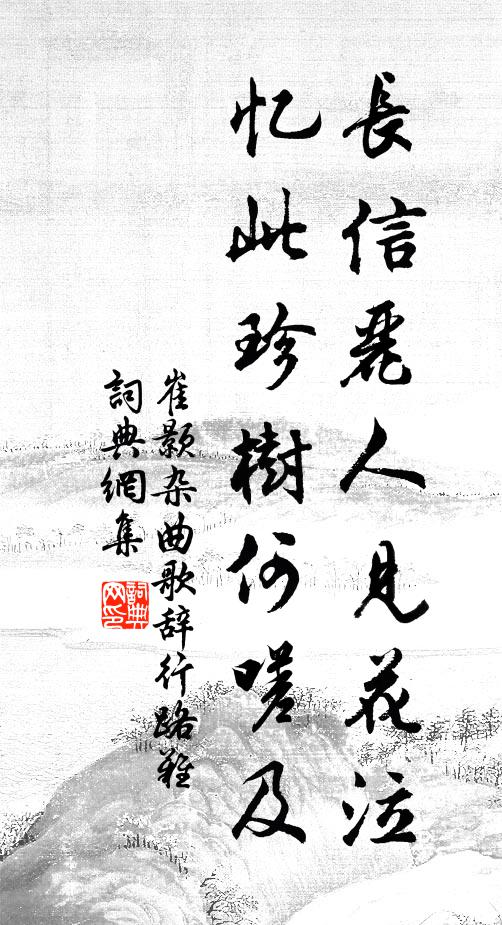 長信麗人見花泣
忆此珍樹何嗟及
崔颢杂曲歌辞行路难
詞典網集
詞典网印